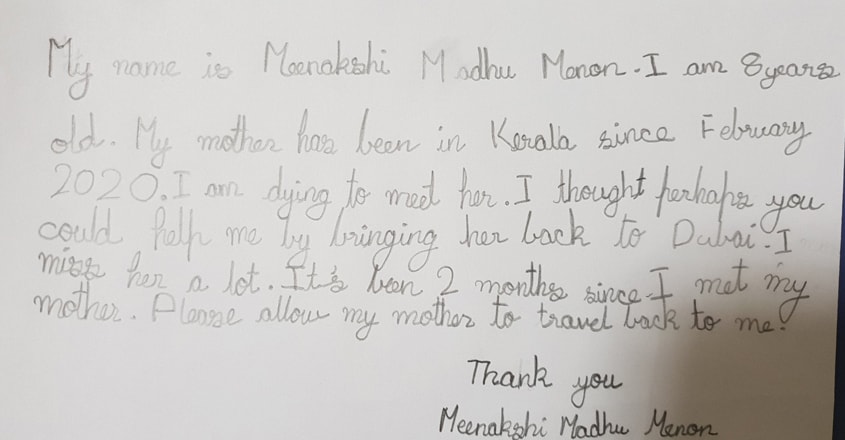 My name is Meenakshi Madhu Menon. I am 8 years
old. My mother has been in Kerala since February
2020. I am dying to meet her. I thought perhaps you
could help me by bringing her back to Dubai. I
miss her a lot. It's been 2 months since I met my
mother. Please allow my mother to travel back to me!
Thank you
Meenakshi Madhu Menon